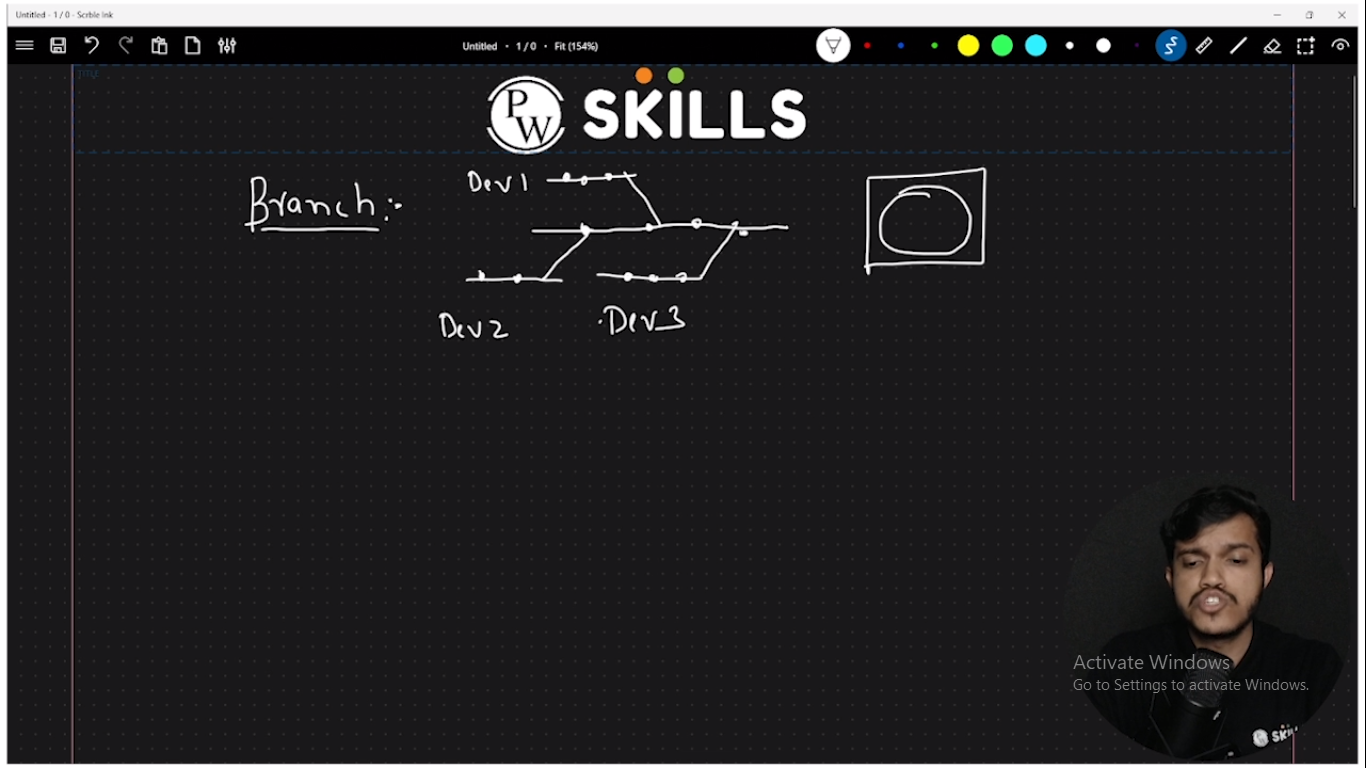 Untitled - 1 / 0 - Scrble Ink
Untitled • 1 / 0 • Fit (154%)
TITLE
PW SKILLS
Branch:-
Dev 1
Dev 2
Dev 3
Activate Windows
Go to Settings to activate Windows.
SKILL